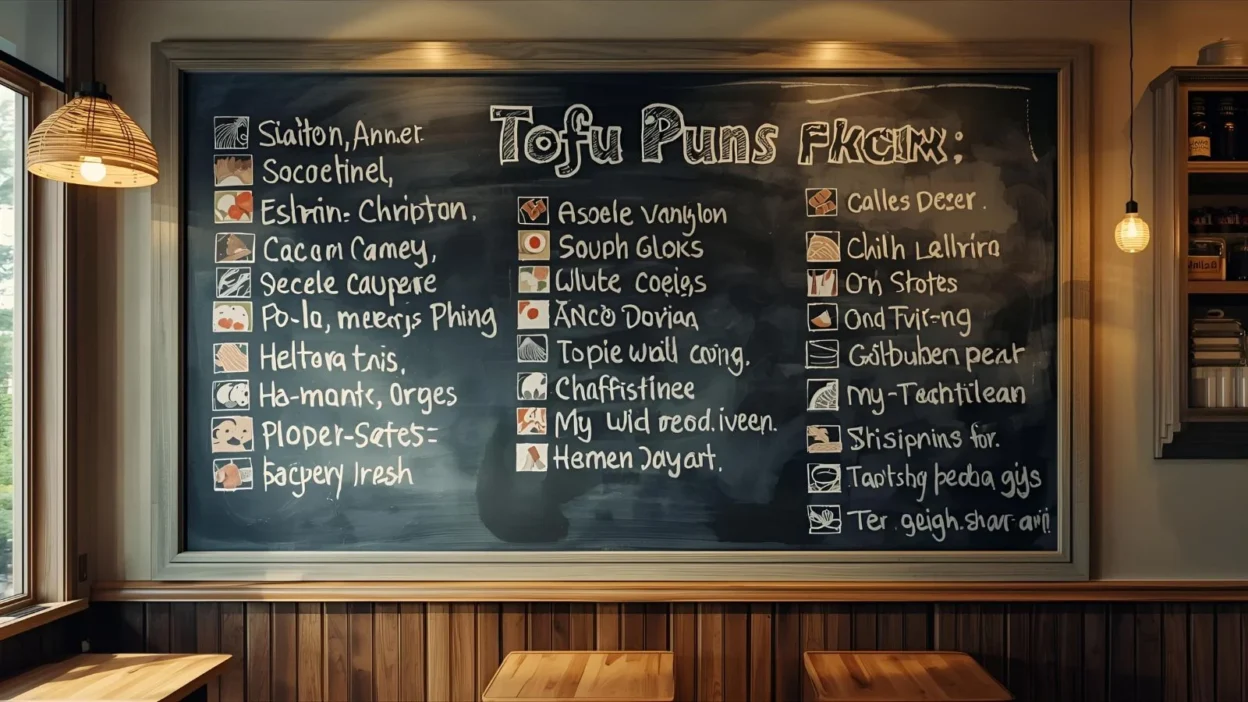 Tofu Puns FKCIK:
Siaiton, Ann.er.
Socoetinel,
Eslnin- Chripton.
Cacam Camey,
Secele Caupere
Po-la, meerjs Phing
Heltora tnis,
Ha-monte, Orges
Ploper-Sates=
Bacpery Iresh
Asoele Vanylon
Souph Gloks
Wute Coeigs
Anco Dovian
Topie wall cning.
Chaffistinee
My Wid reod.iveen.
Hemen Jayart.
Calles Dezer.
Chilh Lellrira
On Stotes
Ond Tvir-ng
Gostbuben peat
my-Taehtilean
Srisipnins for.
Taptshg pedba gys
Ter. geigh.shar-